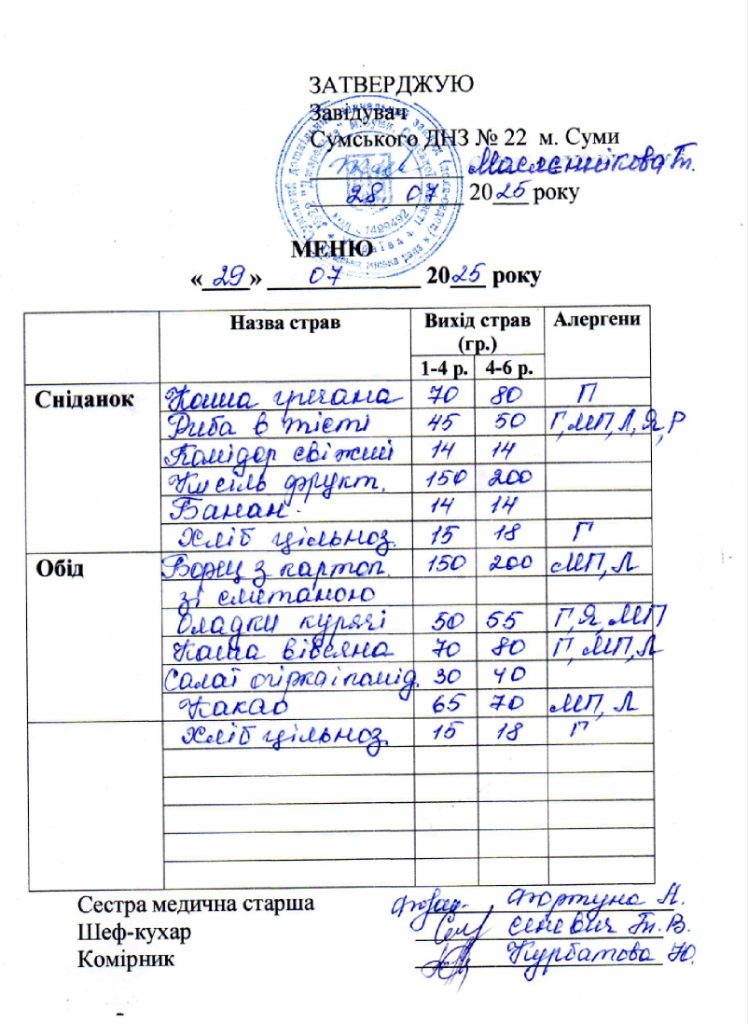 ЗАТВЕРДЖУЮ
Завідувач
Сумського ДНЗ № 22 м. Суми
Масленнікова Т.
28. 07 2025 року
МЕНЮ
« 29 » 07 2025 року
Назва страв Вихід страв (гр.) Алергени
1-4 р. 4-6 р.
Сніданок Каша гречана 70 80 П
Риба в тісті 45 50 Г,МП,Л,Я,Р
Помідор свіжий 14 14
Кисіль фрукт. 150 200
Банан 14 14
Хліб цільноз. 15 18 Г
Обід Борщ з картоп. 150 200 МП, Л
зі сметаною
Оладки курячі 50 55 Г,Я,МП
Каша вівсяна 70 80 Г, МП,Л
Салат огірка і помід. 30 40
Какао 65 70 МП, Л
Хліб цільноз. 15 18 Г
Сестра медична старша Фортуна А.
Шеф-кухар Сеневич Т.В.
Комірник Курбатова Ю.